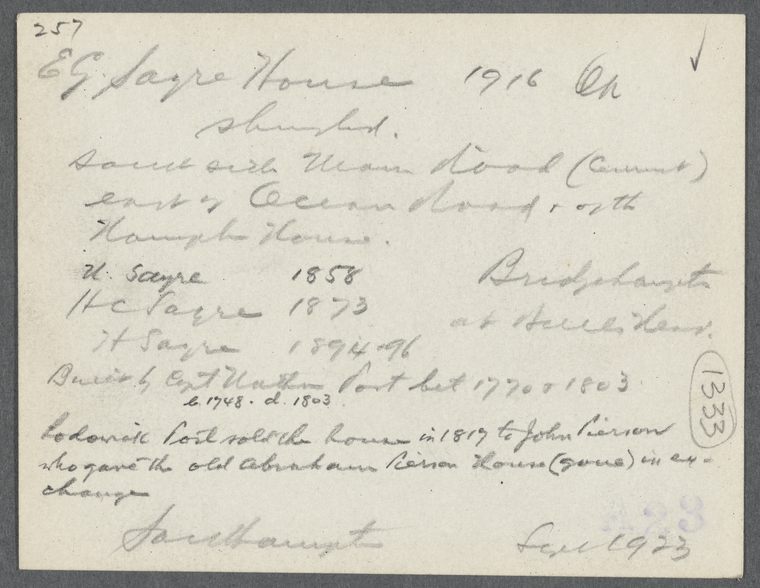 257
EG. Sayre House 1916 On
shingled.
south side Main Road (Cement)
east of Ocean Road & of the
Hampton House.
U. Sayre 1858 Bridgehampton
HC Sayre 1873 at Bulls Head.
H Sayre 1894-96
Built by Capt Nathan Post bet 1770 & 1803
b. 1748. d. 1803
1333
Lodowick Post sold the house in 1817 to John Pierson
who gave the old Abraham Pierson House (gone) in ex-
change
Southampton Sept 1923